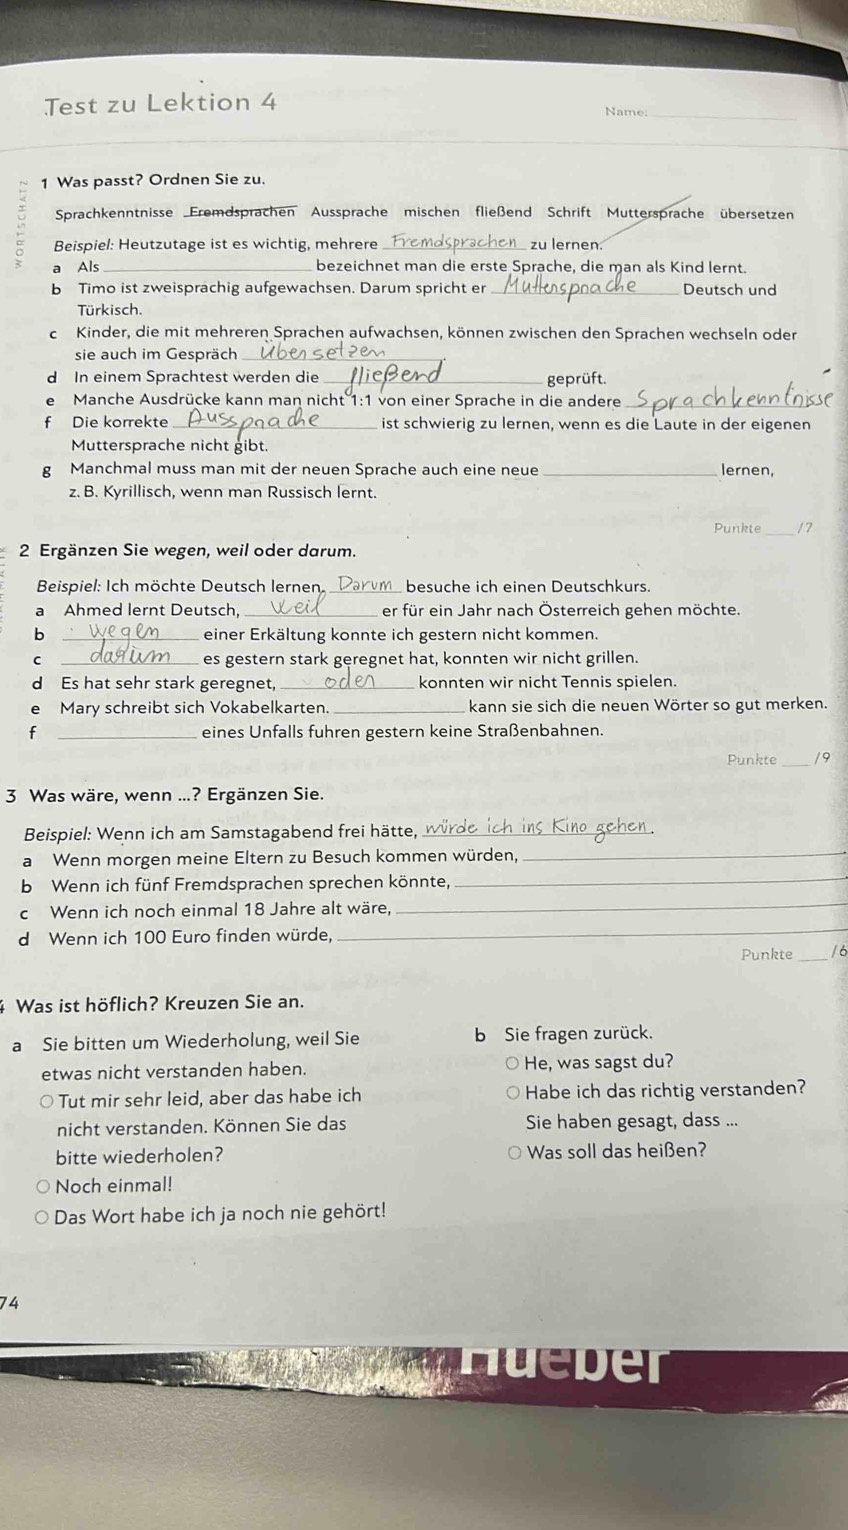 Test zu Lektion 4
Name:
WORTSCHATZ
1 Was passt? Ordnen Sie zu.
Sprachkenntnisse Fremdsprachen Aussprache mischen fließend Schrift Muttersprache übersetzen
Beispiel: Heutzutage ist es wichtig, mehrere Fremdsprachen zu lernen.
a Als ____ bezeichnet man die erste Sprache, die man als Kind lernt.
b Timo ist zweisprachig aufgewachsen. Darum spricht er Muttenspnache Deutsch und
Türkisch.
c Kinder, die mit mehreren Sprachen aufwachsen, können zwischen den Sprachen wechseln oder
sie auch im Gespräch übensetzen.
d In einem Sprachtest werden die fließend geprüft.
e Manche Ausdrücke kann man nicht 1:1 von einer Sprache in die andere Sprachkenntnisse
f Die korrekte Ausspnache ist schwierig zu lernen, wenn es die Laute in der eigenen
Muttersprache nicht gibt.
g Manchmal muss man mit der neuen Sprache auch eine neue ____ lernen,
z. B. Kyrillisch, wenn man Russisch lernt.
Punkte ____ /7
2 Ergänzen Sie wegen, weil oder darum.
Beispiel: Ich möchte Deutsch lernen. Darum besuche ich einen Deutschkurs.
a Ahmed lernt Deutsch, weil er für ein Jahr nach Österreich gehen möchte.
b wegen einer Erkältung konnte ich gestern nicht kommen.
c darum es gestern stark geregnet hat, konnten wir nicht grillen.
d Es hat sehr stark geregnet, oden konnten wir nicht Tennis spielen.
e Mary schreibt sich Vokabelkarten. ____ kann sie sich die neuen Wörter so gut merken.
f ____ eines Unfalls fuhren gestern keine Straßenbahnen.
Punkte ____ /9
3 Was wäre, wenn ...? Ergänzen Sie.
Beispiel: Wenn ich am Samstagabend frei hätte, würde ich ins Kino gehen.
a Wenn morgen meine Eltern zu Besuch kommen würden, ____
b Wenn ich fünf Fremdsprachen sprechen könnte, ____
c Wenn ich noch einmal 18 Jahre alt wäre, ____
d Wenn ich 100 Euro finden würde, ____
Punkte ____ /6
4 Was ist höflich? Kreuzen Sie an.
a Sie bitten um Wiederholung, weil Sie
etwas nicht verstanden haben.
○ Tut mir sehr leid, aber das habe ich
nicht verstanden. Können Sie das
bitte wiederholen?
○ Noch einmal!
○ Das Wort habe ich ja noch nie gehört!
b Sie fragen zurück.
○ He, was sagst du?
○ Habe ich das richtig verstanden?
Sie haben gesagt, dass ...
○ Was soll das heißen?
74
Hueber